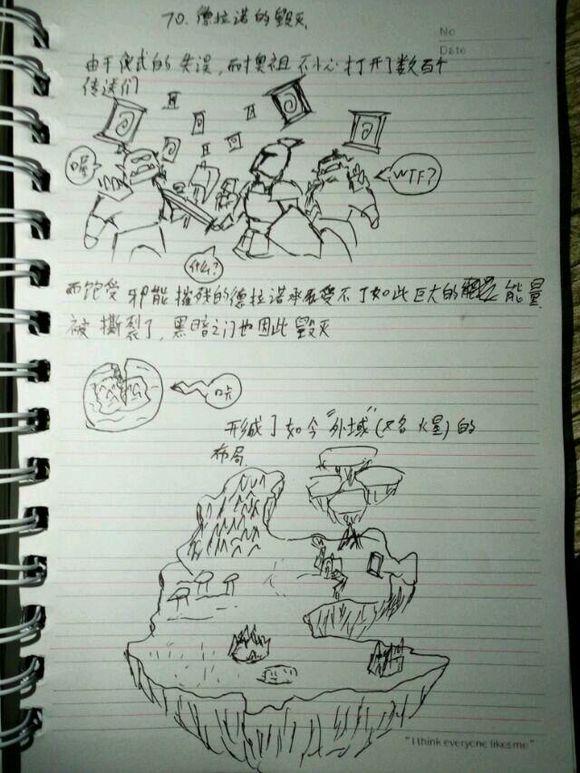 70. 德拉诺的毁灭
No
Date
由于仪式的失误, 而耐奥祖不小心打开了数百个
传送们
喔
WTF?
什么?
而饱受邪能摧残的德拉诺承受不了如此巨大的能量
被撕裂了, 黑暗之门也因此毁灭
咔
形成了如今"外域"(又名火星)的
布局
"I think everyone likes me"